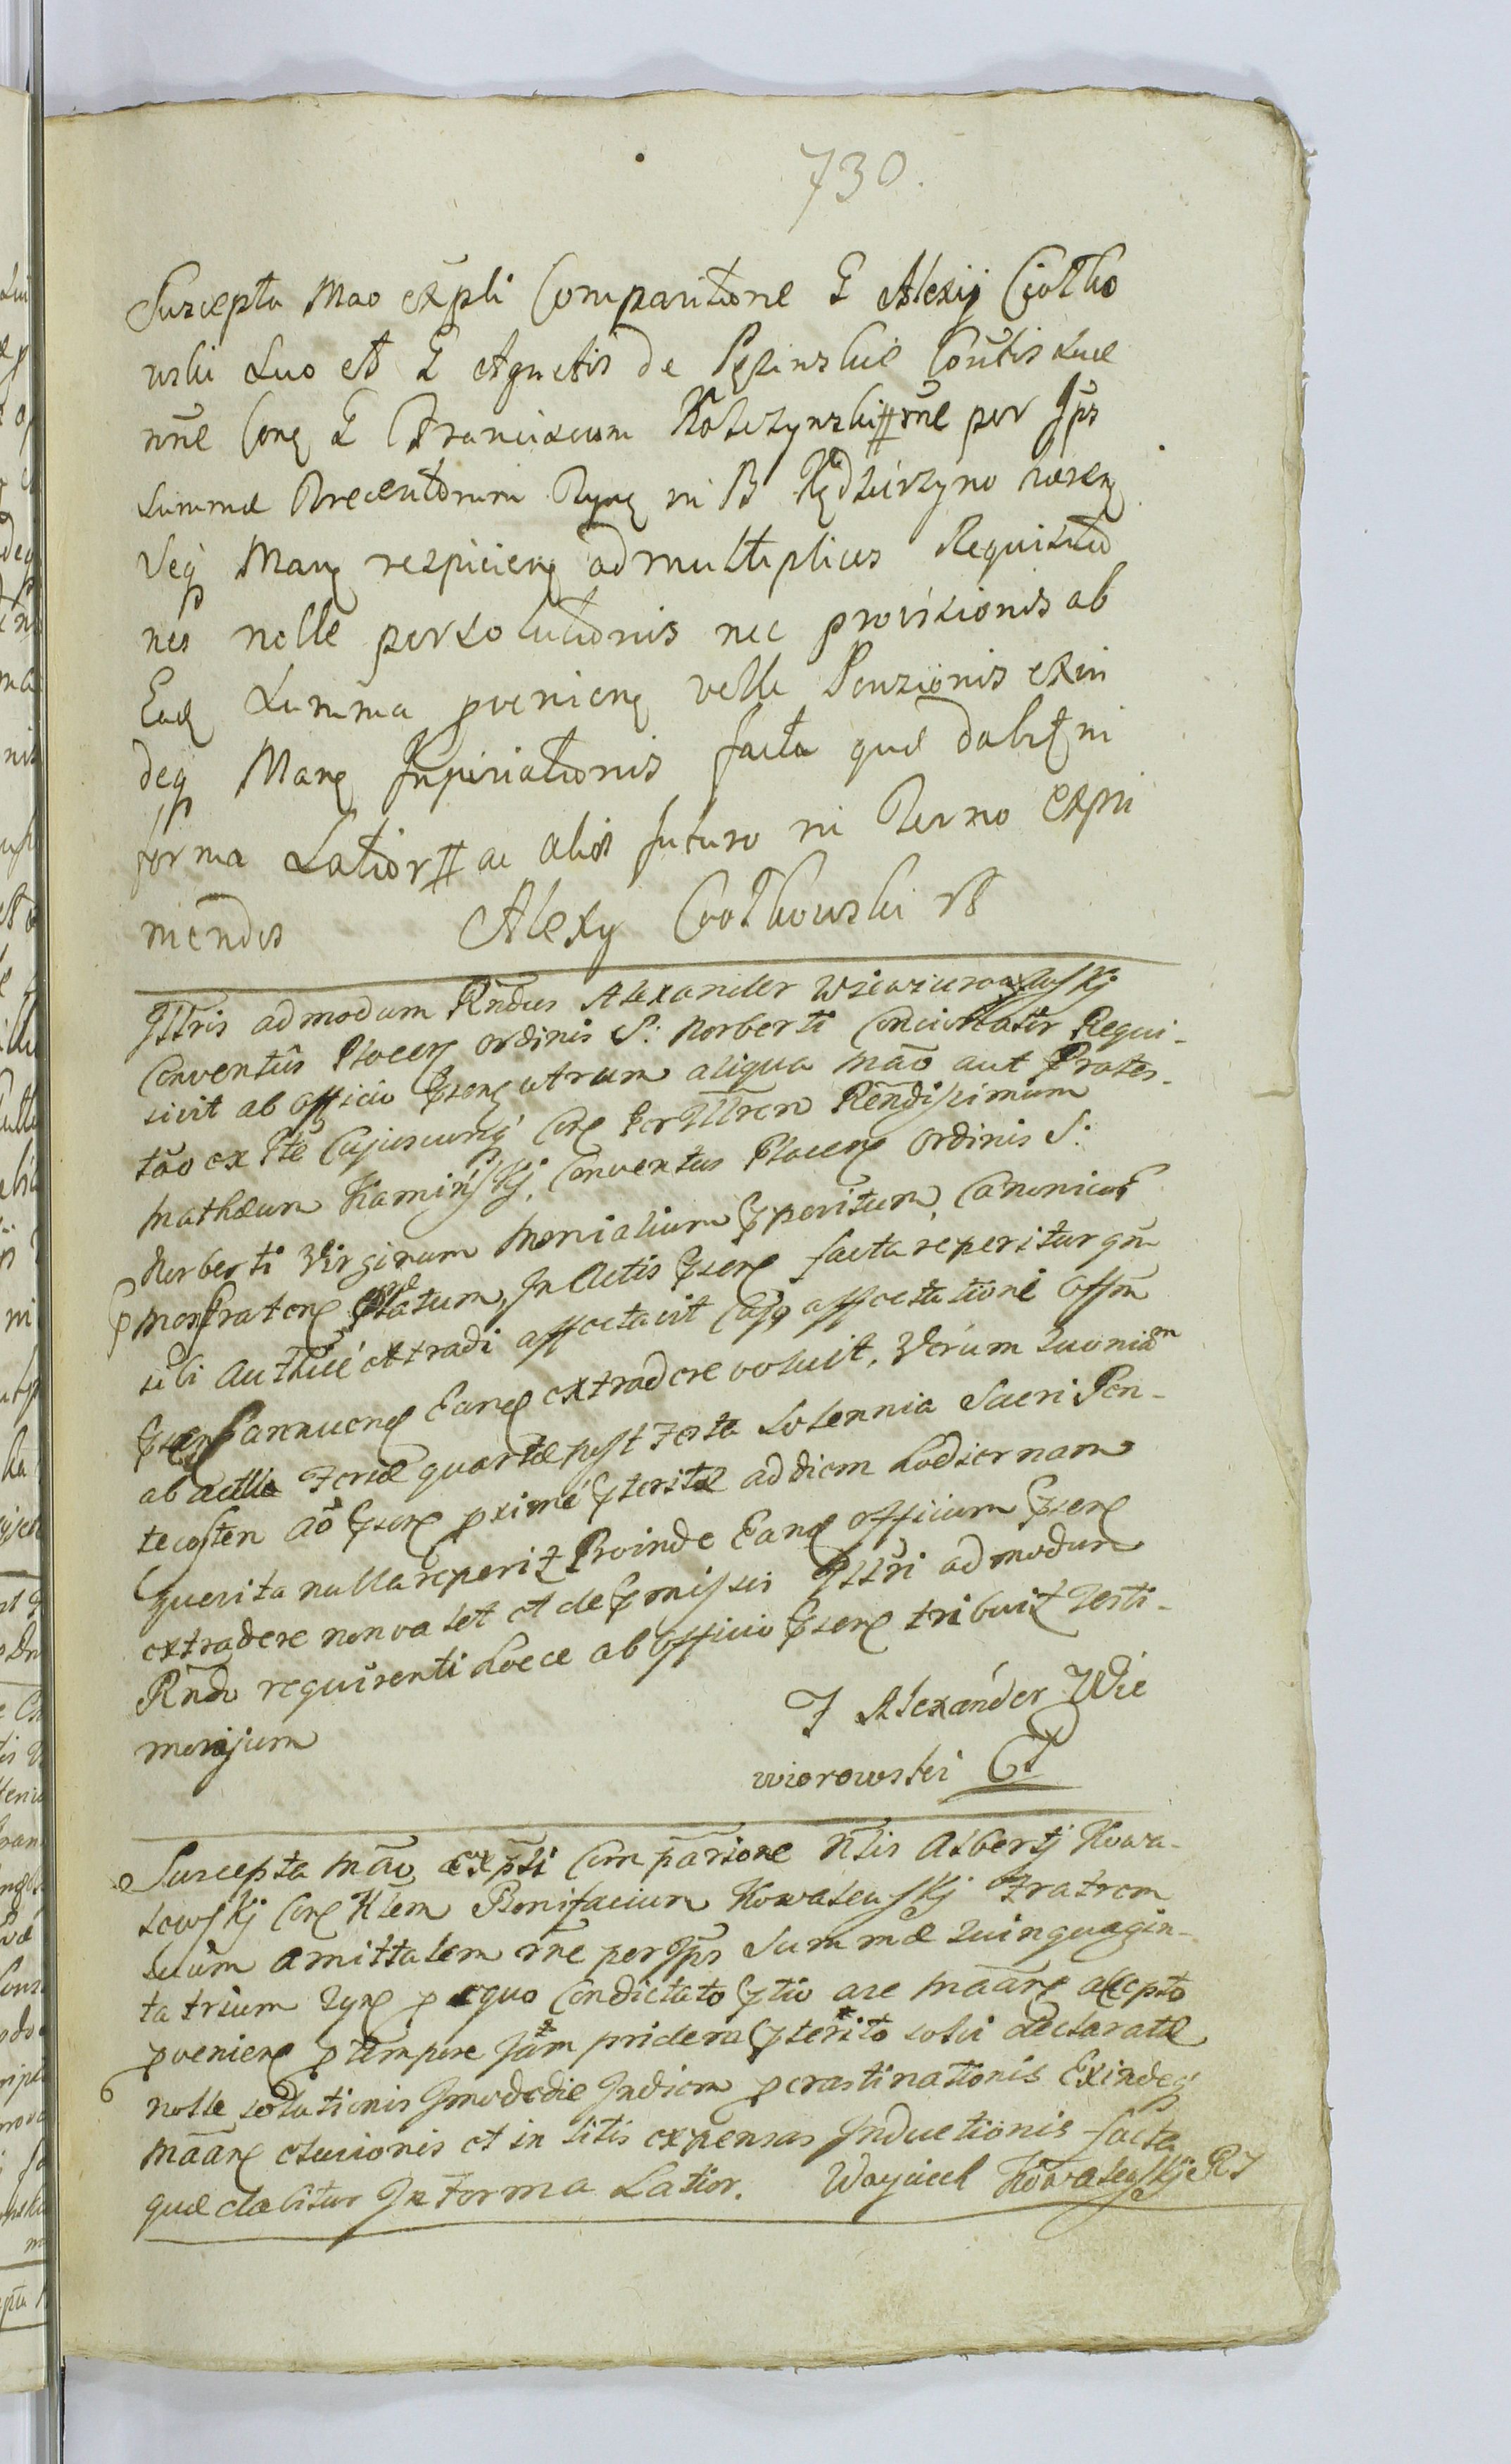 730.
Suscepta Mao expli Comparitione G Alexij Ciołko
wski suo et G Agnetis de Pęsinskie Cons̃tis suæ
nñe Cong G Franciscum Kolczynski rñe per Ips
summæ Trecentorum Tynf in B Kędzierzyno hæreng
Veq Mang respicieng ad multiplices Requisitio
nes nolle persolutionis nec provisionis ab
Ead summa pvenieng velle Pensionis exin
deq Mang Injuriationis facta quæ dabit in
forma Latior ac aliis futuro in Termo expri
mendis Alexy Ciołkowski
Iltris admodum Rñdus Alexander
Conventûs Ploceñ ordinis S: Norberti Concionator Requi-
sivit ab officio pseñ utrum aliqua mão aut Protes-
tão ex Pte Cujuscunq Coñ PerIllrem Reñdissimum
Mathæum Kamińskj, Conventus Ploceñ Ordinis S:
Norberti Virginum Monialium Ppositum, Canonicor
Pmonstrateñ Plãtum, In Actis pseñ facta reperitur qm̃
sibi Authce extradi affectavit Cujq affectationi Offm̃
pseñ annueñ Eañ extradere voluit, Verum quoniãm
ab actu Feriæ quartæ post Festa Solennia Sacri Pen-
tecosten Aõ pseñ pximé pteritæ ad diem hodiernam
quesita nulla reperit Proinde Eanđ officium pseñ
extradere non valet et de pmissis Illri admodum
Rñdo requirenti hocce ab Officio pseñ tribuit Testi-
monijum F Alexánder Wie
wiorowski
Suscepta Mão expłi Comparione Nłis Albertj Kowa-
lewskj Coñ Nlem Bonifacium Kowalewskj Fratrem
suum amittalem rñe per Ips Summæ Quinquagin-
ta trium Tyñ p equo Condictato ptio are maañ accepto
pvenieñ p tempore Jam pridem pterito solvi declaratæ
nolle solutionis Imo de die In diem pcrastinationis Exindeq
mãañ elusionis et in litis expensas Inductionis facta
quæ dabitur In Forma Latior. Woyciech Kowalewskj